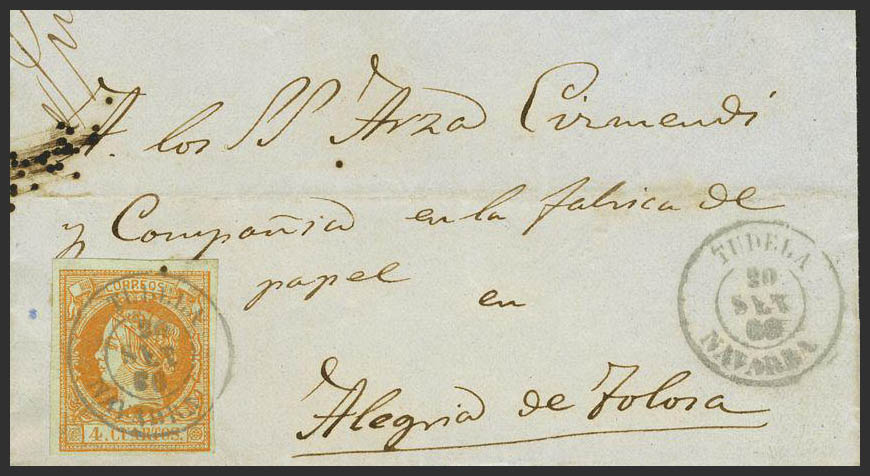 A. los SS Arza Cirmendi
y Compañia en la fabrica de
papel en
Alegria de Tolosa
CORREOS
4. CUARTOS.
TUDELA
20
SET
60
NAVARRA
TUDELA
20
SET
60
NAVARRA